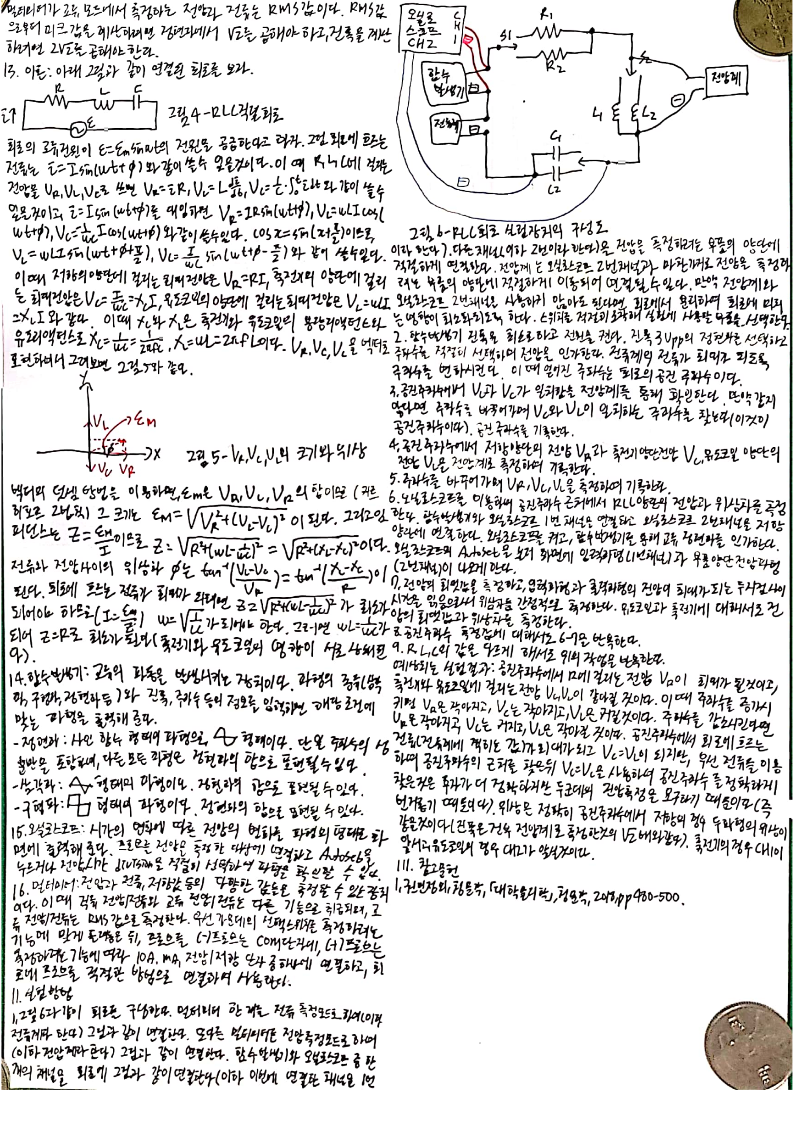 멀티미터가 교류 모드에서 측정하는 전압과 전류는 RMS값이다. RMS값
으로부터 피크 값을 계산하려면 정현파에서 √2를 곱해야 하고, 진폭을 계산
하려면 2√2를 곱해야 한다.
13. 이론: 아래 그림과 같이 연결된 회로를 보자.
R L C
E↑ ε
그림4-RLC직렬회로
회로의 교류전원이 ε=εm sinωt의 전원을 공급한다고 하자. 그럼 회로에 흐르는
전류는 i=I sin(ωt+φ)와 같이 쓸수 있을것이다. 이 때 R, L, C에 걸리는
전압을 VR, VL, VC로 쓰면 VR=iR, VL=L, VC= 와 같이 쓸수
있을것이고, i=I sin(ωt+φ)를 대입하면 VR=IR sin(ωt+φ), VL=ωLI cos(
ωt+φ), 와 같이 쓸수있다. 이므로,
VL=ωLI sin(ωt+φ+π/2), VC=I/ωC sin(ωt+φ-π/2)와 같이 쓸수있다.
이때 저항의양단에 걸리는 최대전압은 VR=RI, 축전기의 양단에 걸리
는 최대전압은 VC=I/ωC=XcI, 유도코일의 양단에 걸리는최대전압은 VL=ωLI
=XLI와 같다. 이때 XC와 XL은 축전기와 유도코일의 용량리액턴스와
유도리액턴스로 XC=1/ωC=1/2πfC, XL=ωL=2πfL이다. VR, VC, VL을 벡터로
표현하여서 그려보면 그림5와 같다.
Y
VL εM
φ X
VC VR
그림5-VR,VC,VL의 크기와 위상
벡터의 덧셈 방법을 이용하면, εm은 VR, VL, VC의 합이므로 (키르
히호프 2법칙) 그 크기는 εM=√(VR²+(VL-VC)²)이 된다. 그리고 임
피던스는 Z=εM/I이므로 Z=√(R²+(ωL-1/ωC)²)=√(R²+(XL-XC)²)이다.
전류와 전압사이의 위상차 φ는 tan⁻¹((VL-VC)/VR)=tan⁻¹((XL-XC)/R)이
된다. 회로에 흐르는 전류가 최대가 되려면 Z=√(R²+(ωL-1/ωC)²)가 최소가
되어야 하므로(I=εM/Z) ω=√(1/LC)가 되어야 한다. 그러면 ωL=1/ωC가
되어 Z=R로 최소가 된다(축전기와 유도코일의 영향이 서로 상쇄된
다).
14. 함수발생기: 교류의 파동을 발생시키는 장치이다. 파형의 종류(삼각
파, 구형파, 정현파 등)와 진폭, 주파수 등의 정보를 입력하면 해당 조건에
맞는 파형을 출력해 준다.
-정현파: 사인 함수 형태의 파형으로, 형태이다. 단일 주파수의 성
분만을 포함하며, 다른 모든 파형은 정현파의 합으로 표현될수 있다.
-삼각파: 형태의 파형이다. 정현파의 합으로 표현될 수 있다.
-구형파: 형태의 파형이다. 정현파의 합으로 표현될 수 있다.
15. 오실로스코프: 시간의 변화에 따른 전압의 변화를 파형의 형태로 화
면에 출력해 준다. 프로브를 전압을 측정할 대상에 연결하고 Autoset을
누르거나 전압/시간 division을 적절히 선택하여 파형을 확인할 수 있다.
16. 멀티미터: 전압과 전류, 저항값 등의 다양한 값들을 측정할 수 있는 장치
이다. 이때 직류 전압/전류와 교류 전압/전류는 다른 기능으로 취급되며, 교
류 전압/전류는 RMS값으로 측정한다. 우선 가운데의 선택스위치를 측정하려는
기능에 맞게 돌려놓은 뒤, 프로브를 (-)프로브는 COM단자에, (+)프로브는
측정하려는 기능에 따라 10A, mA, 전압/저항 단자 중 하나에 연결하고, 회
로에 프로브를 적절한 방법으로 연결하여 사용한다.
II. 실험 방법
1. 그림6과 같이 회로를 구성한다. 멀티미터 한 개는 전류 측정모드로 하여(이하
전류계라 한다) 그림과 같이 연결한다. 또다른 멀티미터는 전압측정모드로 하여
(이하 전압계라 한다) 그림과 같이 연결한다. 함수발생기와 오실로스코프 중 한
개의 채널을 회로에 그림과 같이 연결한다(이하 이번에 연결한 채널을 1번
오실로
스코프
CH2
CH1
함수
발생기
전류계
S1 R1
R2
S2
전압계
L1 L2
C1
C2
그림6-RLC회로 실험장치의 구성도
이라 한다). 다른채널(이하 2번이라 한다)은 전압을 측정하려는 부품의 양단에
적절하게 연결한다. 전압계는 오실로스코프 2번채널과 마찬가지로 전압을 측정하
려는 부품의 양단에 적절하게 이동되어 연결될 수 있다. 만약 전압계와
오실로스코프 2번채널을 사용하지 않아도 된다면, 회로에서 분리하여 회로에 미치
는 영향이 최소화되도록 한다. 스위치를 적절히 조작해 실험에 사용할 부품을 선택한다.
2. 함수발생기 진폭을 최소로하고 전원을 켠다. 진폭 3Vpp의 정현파를 선택하고
주파수를 적절히 선택하여 전압을 인가한다. 전류계의 전류가 최대가 되도록
주파수를 변화시킨다. 이 때 얻어진 주파수는 회로의 공진 주파수이다.
3. 공진주파수에서 VL과 VC가 일치함을 전압계를 통해 확인한다. 만약 같지
않다면 주파수를 바꾸어가며 VC와 VL이 일치하는 주파수를 찾는다(이것이
공진주파수이다). 공진 주파수를 기록한다.
4. 공진주파수에서 저항양단의 전압 VR과 축전기양단전압 VC, 유도코일 양단의
전압 VL을 전압계로 측정하여 기록한다.
5. 주파수를 바꾸어가며 VR, VC, VL을 측정하여 기록한다.
6. 오실로스코프를 이용하여 공진주파수 근처에서 RLC양단의 전압과 위상차를 측정
한다. 함수발생기와 오실로스코프 1번 채널을 연결하고 오실로스코프 2번채널을 저항
양단에 연결한다. 오실로스코프를 켜고, 함수발생기를 통해 교류 정현파를 인가한다.
오실로스코프의 Autoset을 눌러 화면에 입력파형(1번채널)과 부품양단 전압파형
(2번채널)이 나오게 한다.
7. 전압의 최댓값을 측정하고, 입력파형과 출력파형의 전압이 최대가 되는 두지점사이
시간을 읽음으로써 위상차를 간접적으로 측정한다. 유도코일과 축전기에 대해서도 전
압의 최댓값과 위상차를 측정한다.
8. 공진주파수 측정값에 대해서도 6-7을 반복한다.
9. R, L, C의 값을 다르게 해서도 위의 작업을 반복한다.
예상되는 실험결과: 공진주파수에서 R에 걸리는 전압 VR이 최대가 될것이고,
축전기와 유도코일에 걸리는 전압 VC, VL이 같아질 것이다. 이때 주파수를 증가시
키면 VR은 작아지고, VC는 작아지고, VL은 커질것이다. 주파수를 감소시킨다면
VR은 작아지고, VC는 커지고, VL은 작아질 것이다. 공진주파수에서 회로에 흐르는
전류(전류계에 찍히는 값)가 최대가되고 VC=VL이 되지만, 우선 전류를 이용
하여 공진주파수의 근처를 찾은뒤 VC=VL을 사용하여 공진주파수를 정확하게
찾은것은 후자가 더 정확하지만 두군데의 전압측정을 요구하기 때문이다(즉
번거롭기 때문이다). 위상은 정확히 공진주파수에서 저항의 경우 두파형의 위상이
같을것이다(진폭은 건욱 전압계로 측정한것의 √2배와같다). 축전기의 경우 CH1이
앞서고, 유도코일의 경우 CH2가 앞설것이다.
III. 참고문헌
1. 권민정외, 청문각, 「대학물리학」, 청문각, 2018, pp480-500.